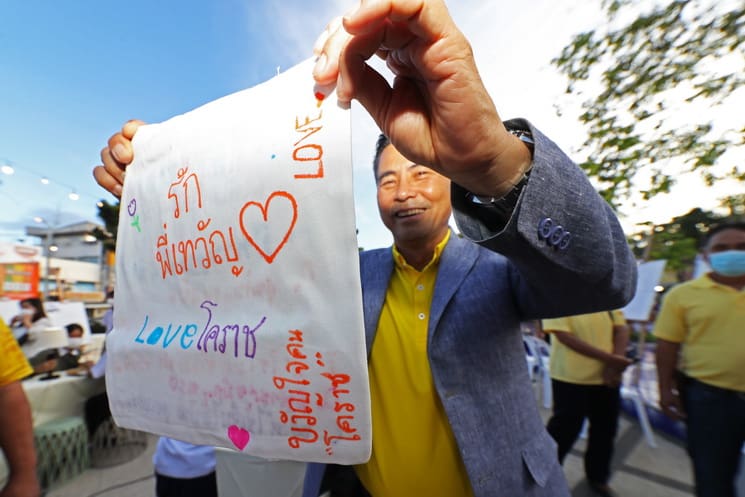 LOVE
รัก
พี่เทวัญ
Loveโคราช
ขวัญใจคน
"โคราช"